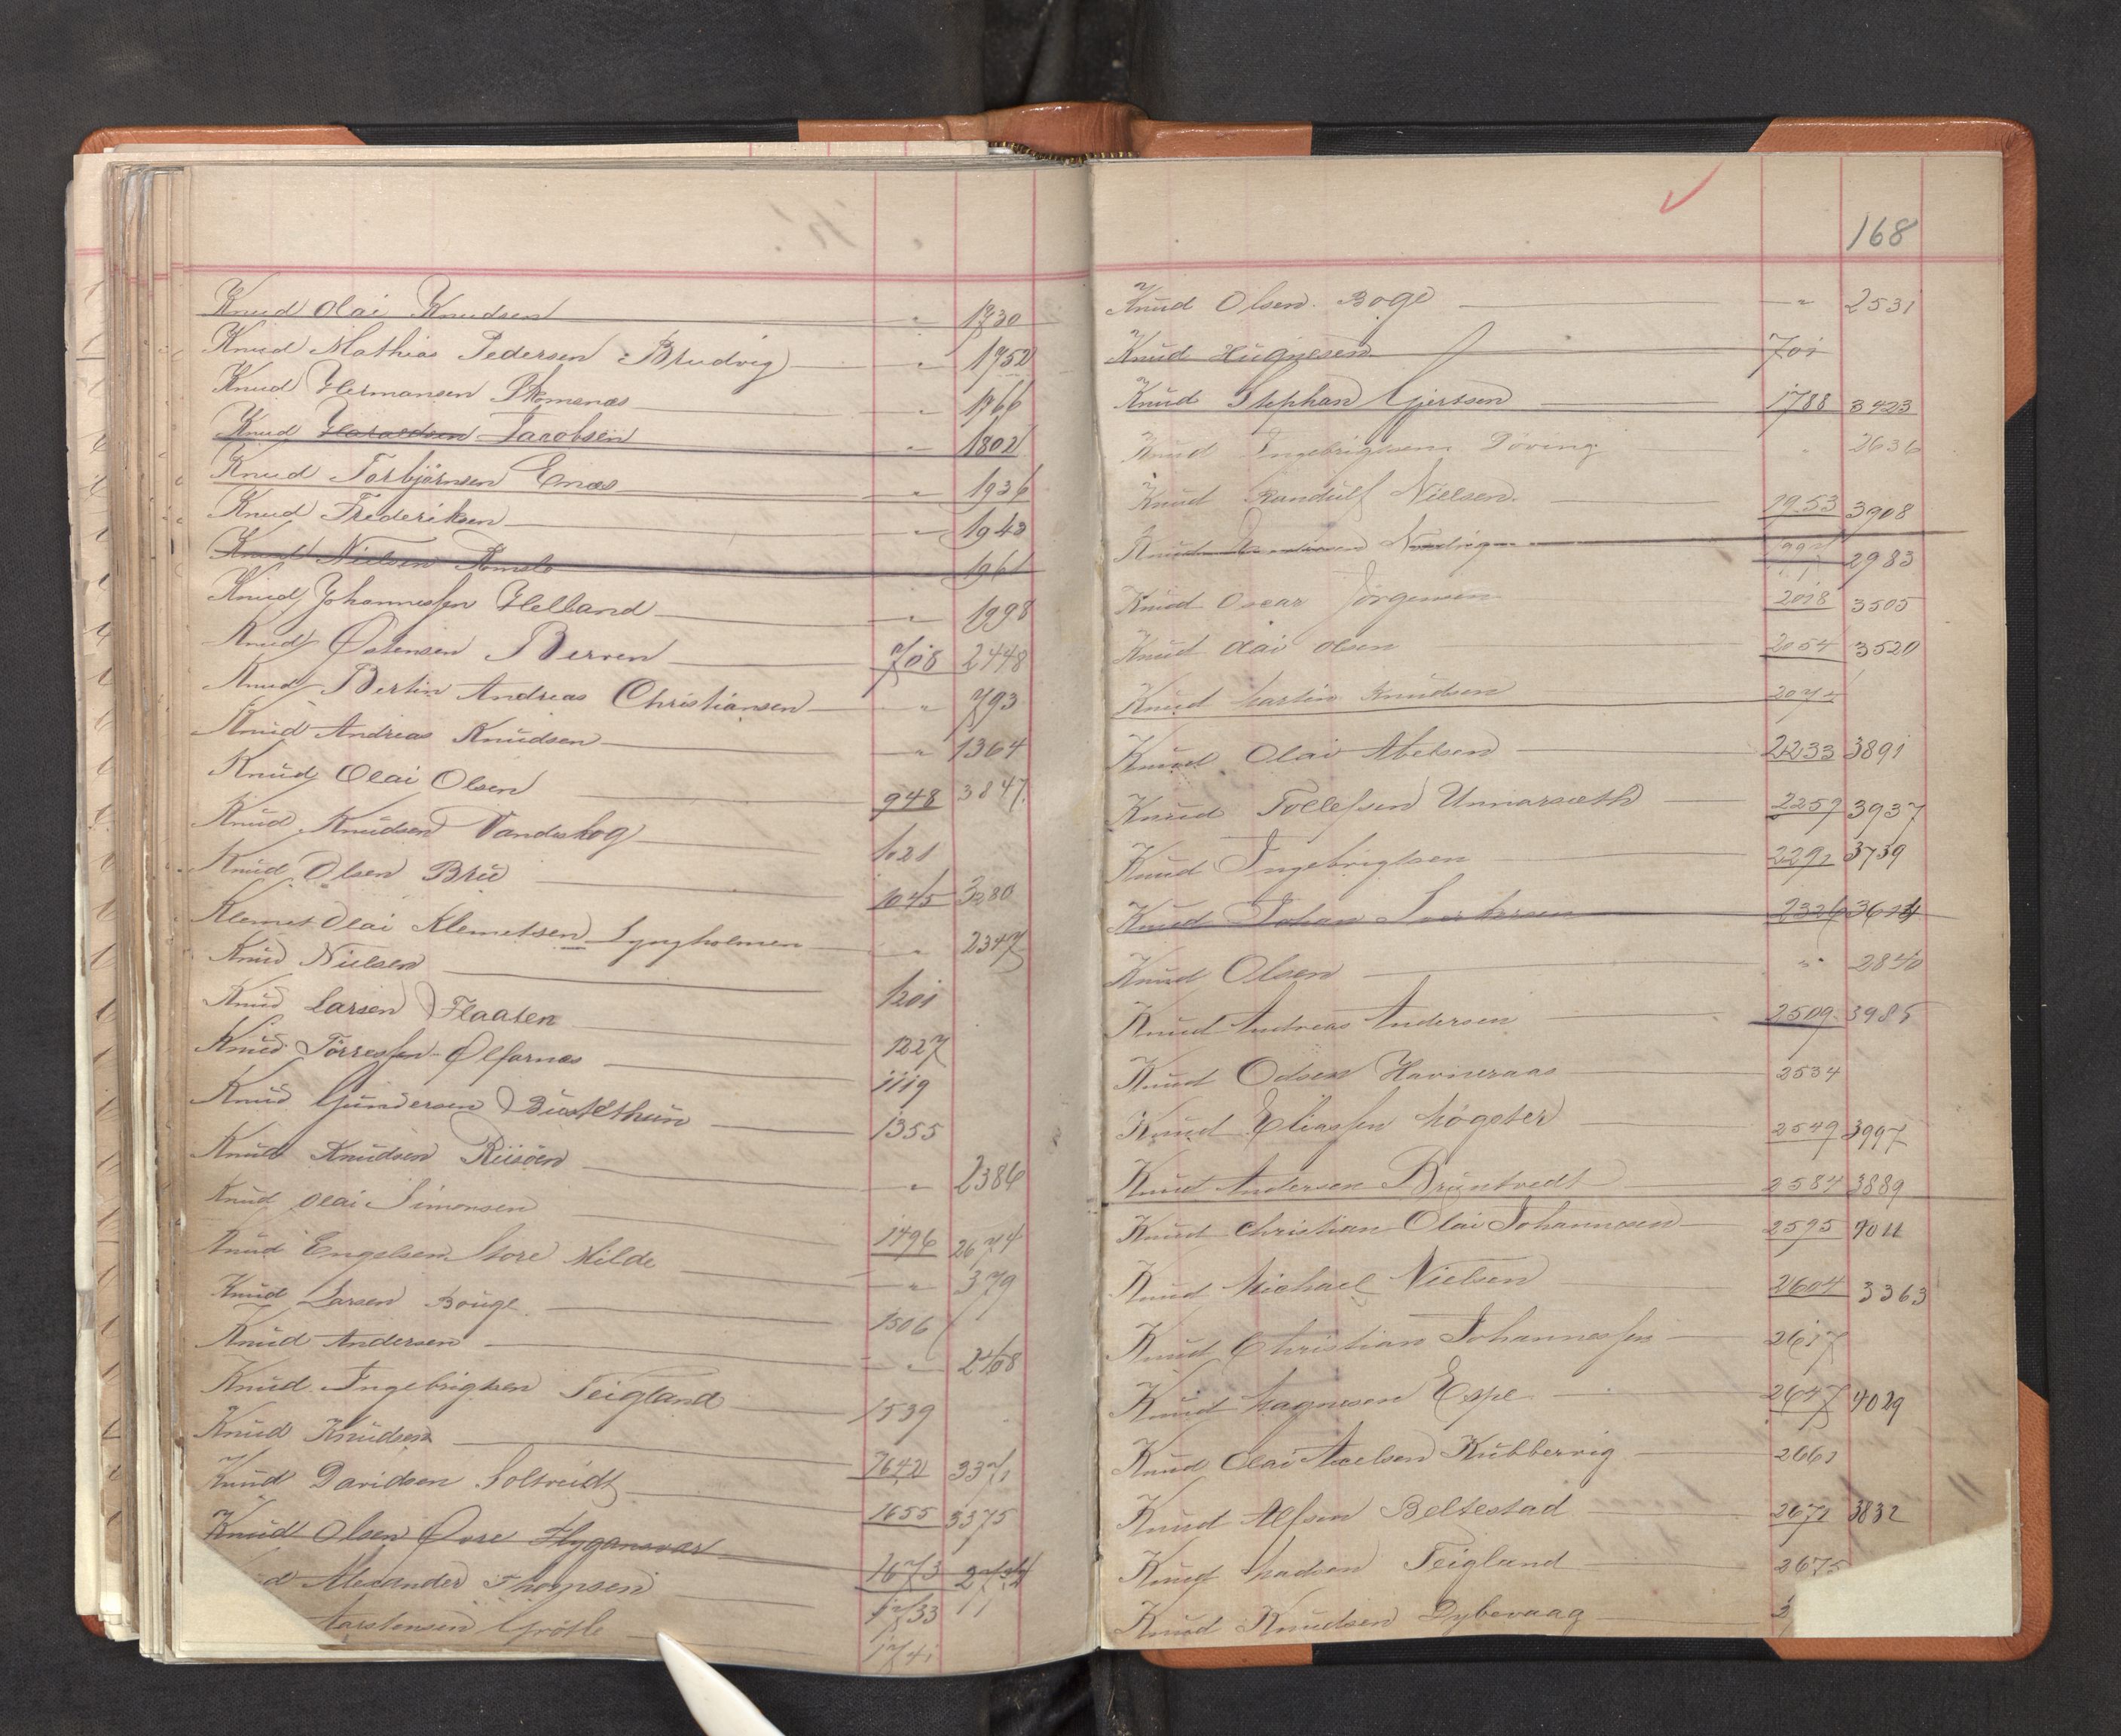 Knud Olai Knudsen " 1730
Knud Mathias Pedersen Brudvig " 1752
Knud Hermansen Skomsnæs " 1766
Knud Haraldsen Jacobsen " 1802
Knud Torbjörnsen Enæs " 1936
Knud Frederiksen " 1943
Knud Nielsen " 1961
Knud Johannessen Helland " 1998
Knud Östensen Berven 708 2448
Knud Bertin Andreas Christiansen " 793
Knud Andreas Knudsen " 1364
Knud Olai Olsen 948 3847
Knud Knudsen Vandeskog 1021
Knud Olsen Brú 1045 3280
Klemet Olai Klemetsen Lyngholmen " 2347
Knud Nielsen 1201
Knud Larsen Flaaten 1227
Knud Törressen Ölfarnæs 1119
Knud Gundersen Büstethün 1355
Knud Knudsen Riisöen " 2386
Knud Olai Simonsen 1496 2674
Knud Engelsen Store Milde " 379
Knud Larsen Bouge 1506
Knud Andersen " 2408
Knud Ingebrigtsen Teigland 1539
Knud Knudsen 1642 3371
Knud Davidsen Soltveidt 1655 3375
Knud Olsen Övre Flygansvær 1673
Alexander Thomsen 1733
Torstensen Grötle 1741
168
Knud Olsen Boge " 2531
Knud Hugnesen 701
Knud Stephan Gjertsen 1788 3423
Knud Ingebrigtsen Döving " 2636
Knud Randulf Nielsen 1953 3908
Knud 2983
Knud Oscar Jörgensen 2018 3505
Knud Olai Olsen 2054 3520
Knud Martin Knudsen 2074
Knud Olai Abelsen 2233 3891
Knud Tollefsen Unnarsæth 2257 3937
Knud Ingebrigtsen 2291 3739
Knud Johan 2326
Knud Olsen " 2840
Knud Andreas Andersen 2509 3985
Knud Odsen Havneraas 2534
Knud Eliassen Mögster 2549 3997
Knud Andersen Bryntvedt 2584 3889
Knud Christian Olai Johannesen 2595 4011
Knud Michael Nielsen 2604 3363
Knud Christian Johannessen 2617
Knud Magnesen Espe 2647 4029
Knud Olai Axelsen Kubbervig 2661
Knud Alfsen Beltestad 2671 3832
Knud Madsen Teigland 2675
Knud Knudsen Dybevaag